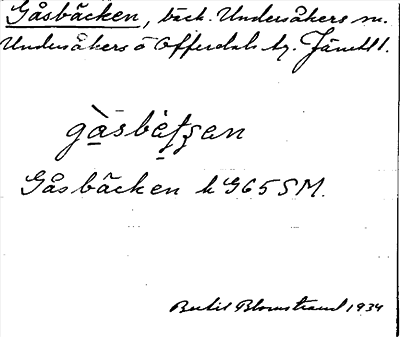 Gåsbäcken, bäck. Undersåkers sn.
Undersåkers o Offerdals tg. Jämtl.
gåsbètʃen
Gåsbäcken k G65SM.
Bertil Blomstrand 1934